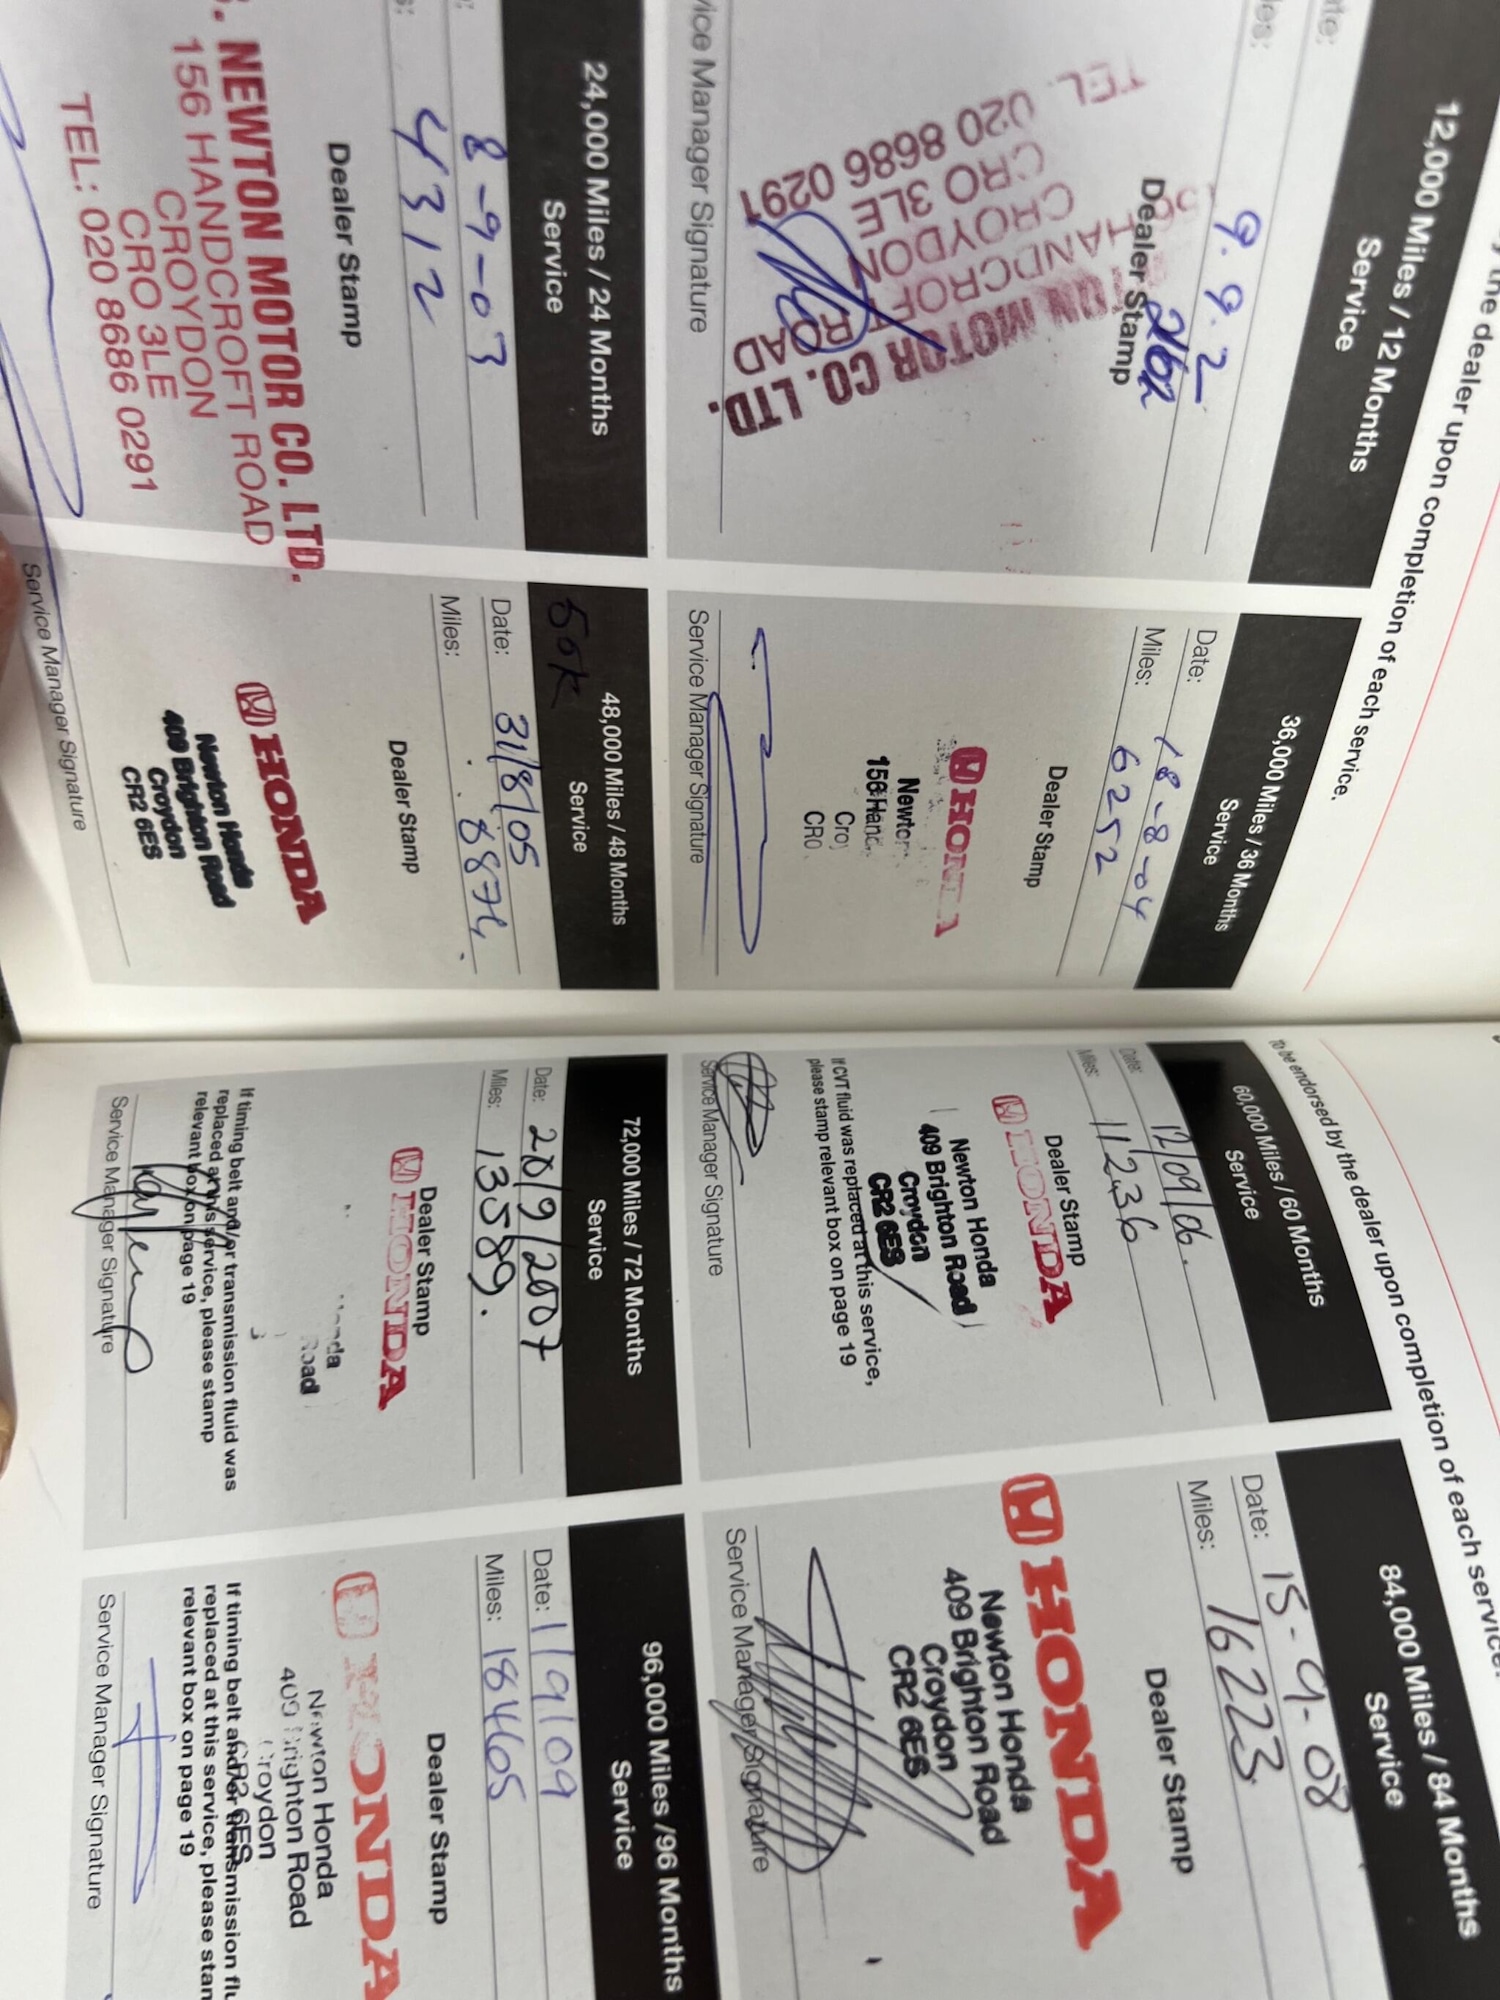 the dealer upon completion of each service.
12,000 Miles / 12 Months
Service
9.9.2
Dealer Stamp
MOTOR CO. LTD.
HANDCROFT ROAD
CROYDON
CRO 3LE
TEL. 020 8686 0291
Service Manager Signature
24,000 Miles / 24 Months
Service
8-9-03
4312
Dealer Stamp
NEWTON MOTOR CO. LTD.
156 HANDCROFT ROAD
CROYDON
CRO 3LE
TEL: 020 8686 0291
36,000 Miles / 36 Months
Service
Date: 18-8-04
Miles: 6252
Dealer Stamp
HONDA
156
Service Manager Signature
48,000 Miles / 48 Months
Service
50K
Date: 31/8/05
Miles: 8874
Dealer Stamp
HONDA
Newton Honda
409 Brighton Road
Croydon
CR2 6ES
Service Manager Signature
To be endorsed by the dealer upon completion of each service.
60,000 Miles / 60 Months
Service
Date: 12/09/06.
Miles: 11236
Dealer Stamp
HONDA
Newton Honda
409 Brighton Road
Croydon
CR2 6ES
If CVT fluid was replaced at this service,
please stamp relevant box on page 19
Service Manager Signature
72,000 Miles / 72 Months
Service
Date: 20/9/2007
Miles: 13589.
Dealer Stamp
HONDA
Road
If timing belt and/or transmission fluid was
replaced at this service, please stamp
relevant box on page 19
Service Manager Signature
84,000 Miles / 84 Months
Service
Date: 15-9-08
Miles: 16223
Dealer Stamp
HONDA
Newton Honda
409 Brighton Road
Croydon
CR2 6ES
Service Manager Signature
96,000 Miles /96 Months
Service
Date: 1/9/09
Miles: 18465
Dealer Stamp
HONDA
Newton Honda
409 Brighton Road
Croydon
CR2 6ES
If timing belt and/or transmission flu
replaced at this service, please stam
relevant box on page 19
Service Manager Signature